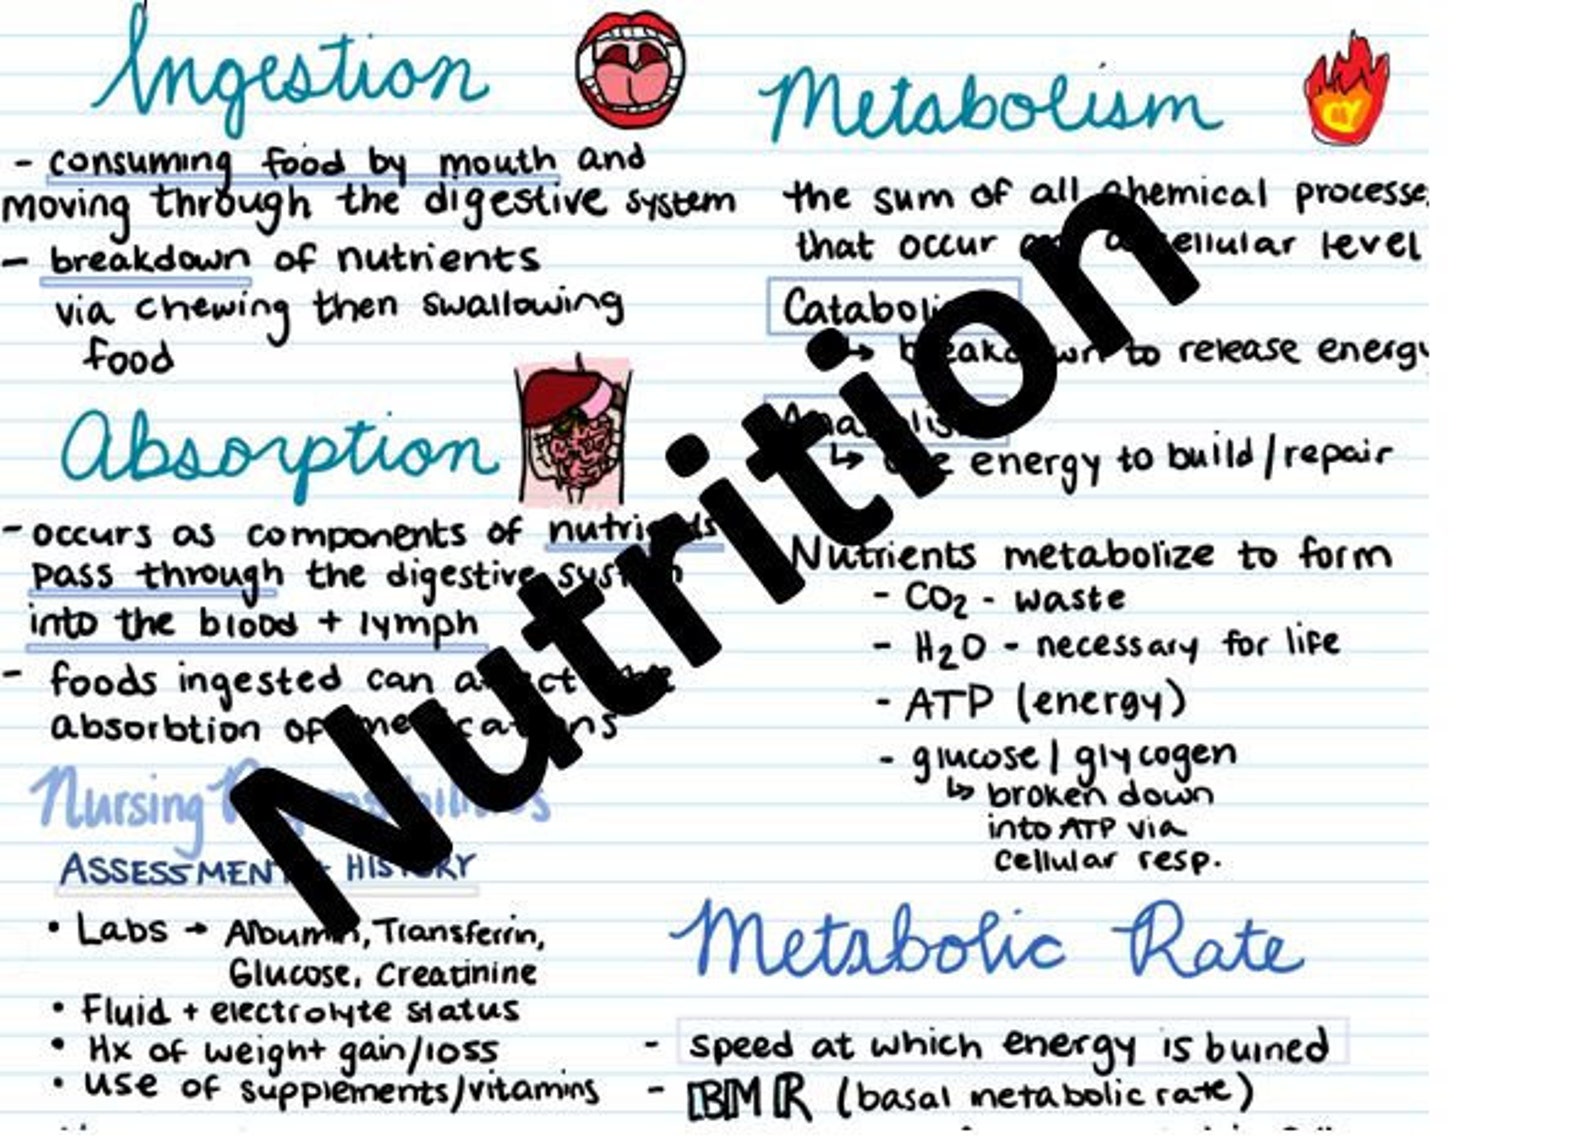 Ingestion
- consuming food by mouth and
moving through the digestive system
- breakdown of nutrients
via chewing then swallowing
food
Absorption
- occurs as components of nutrients
pass through the digestive system
into the blood + lymph
- foods ingested can affect the
absorbtion of medications
Nursing Responsibilities
ASSESSMENT + HISTORY
• Labs → Albumin, Transferrin,
Glucose, Creatinine
• Fluid + electrolyte status
• Hx of weight gain/loss
• use of supplements/vitamins
Metabolism
the sum of all chemical processe
that occur on a cellular level
Catabolism
↳ breakdown to release energy
Anabolism
↳ use energy to build/repair
Nutrients metabolize to form
- CO2 - waste
- H2O - necessary for life
- ATP (energy)
- glucose/glycogen
↳ broken down
into ATP via
cellular resp.
Metabolic Rate
- speed at which energy is burned
- BMR (basal metabolic rate)
Nutrition